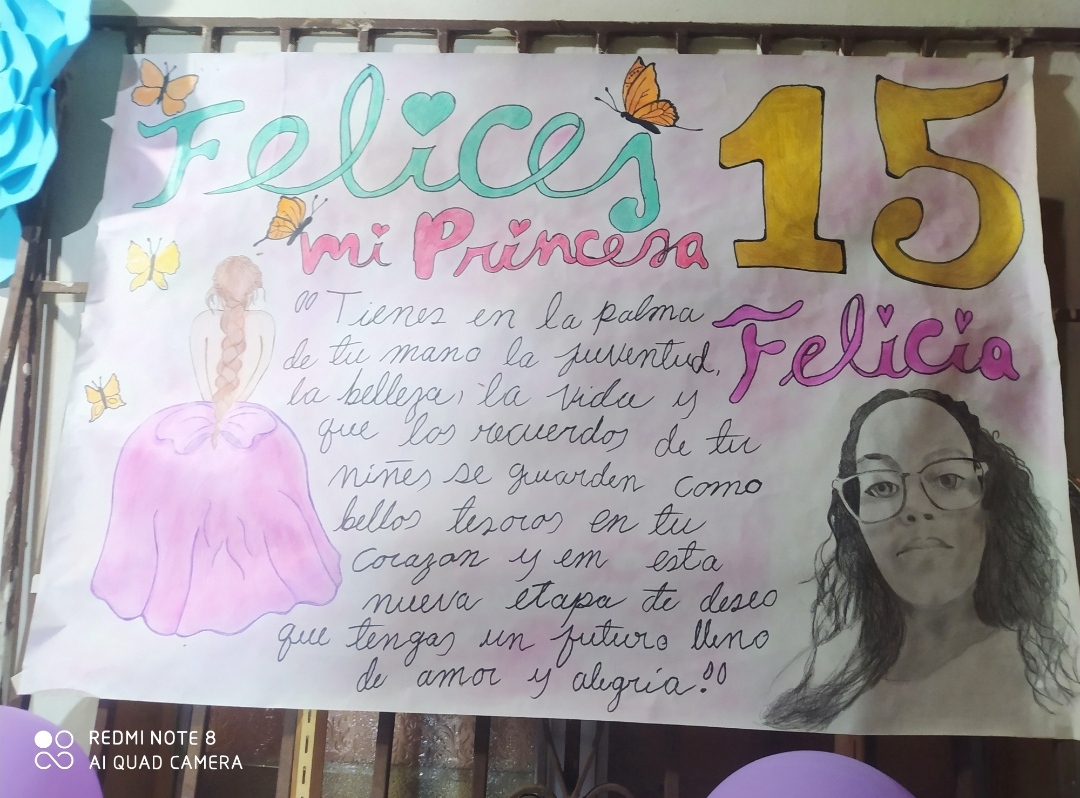 Felices
15
mi Princesa
Felicia
"Tienes en la palma
de tu mano la juventud,
la belleza, la vida y
que los recuerdos de tu
niñes se guarden como
bellos tesoros en tu
corazon y em esta
nueva etapa te deseo
que tengas un futuro lleno
de amor y alegría."
REDMI NOTE 8
AI QUAD CAMERA